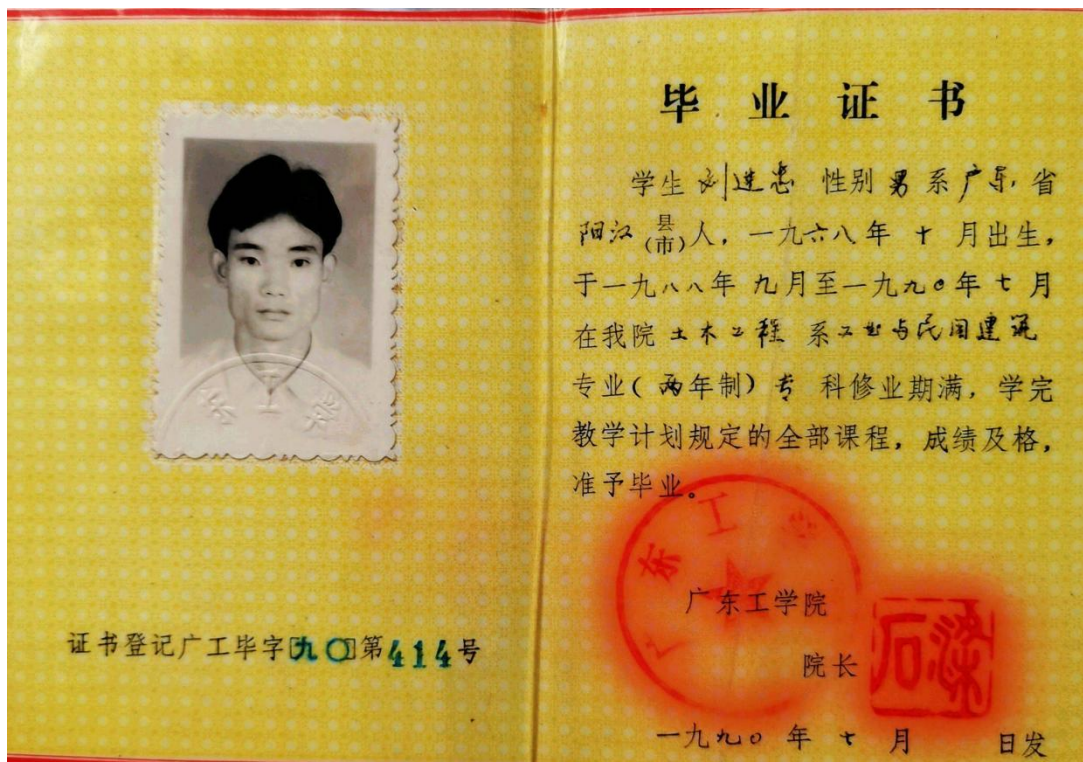 证书登记广工毕字〔九〇〕第414号
毕业证书
学生 刘进忠 性别 男 系 广东 省
阳江 县(市)人，一九六八年 十 月出生，
于一九八八年 九月至一九九〇年 七 月
在我院 土木工程 系 工业与民用建筑
专业(两年制) 专 科修业期满，学完
教学计划规定的全部课程，成绩及格，
准予毕业。
广东工学院
院长
一九九〇 年 七 月 日发
广东工学